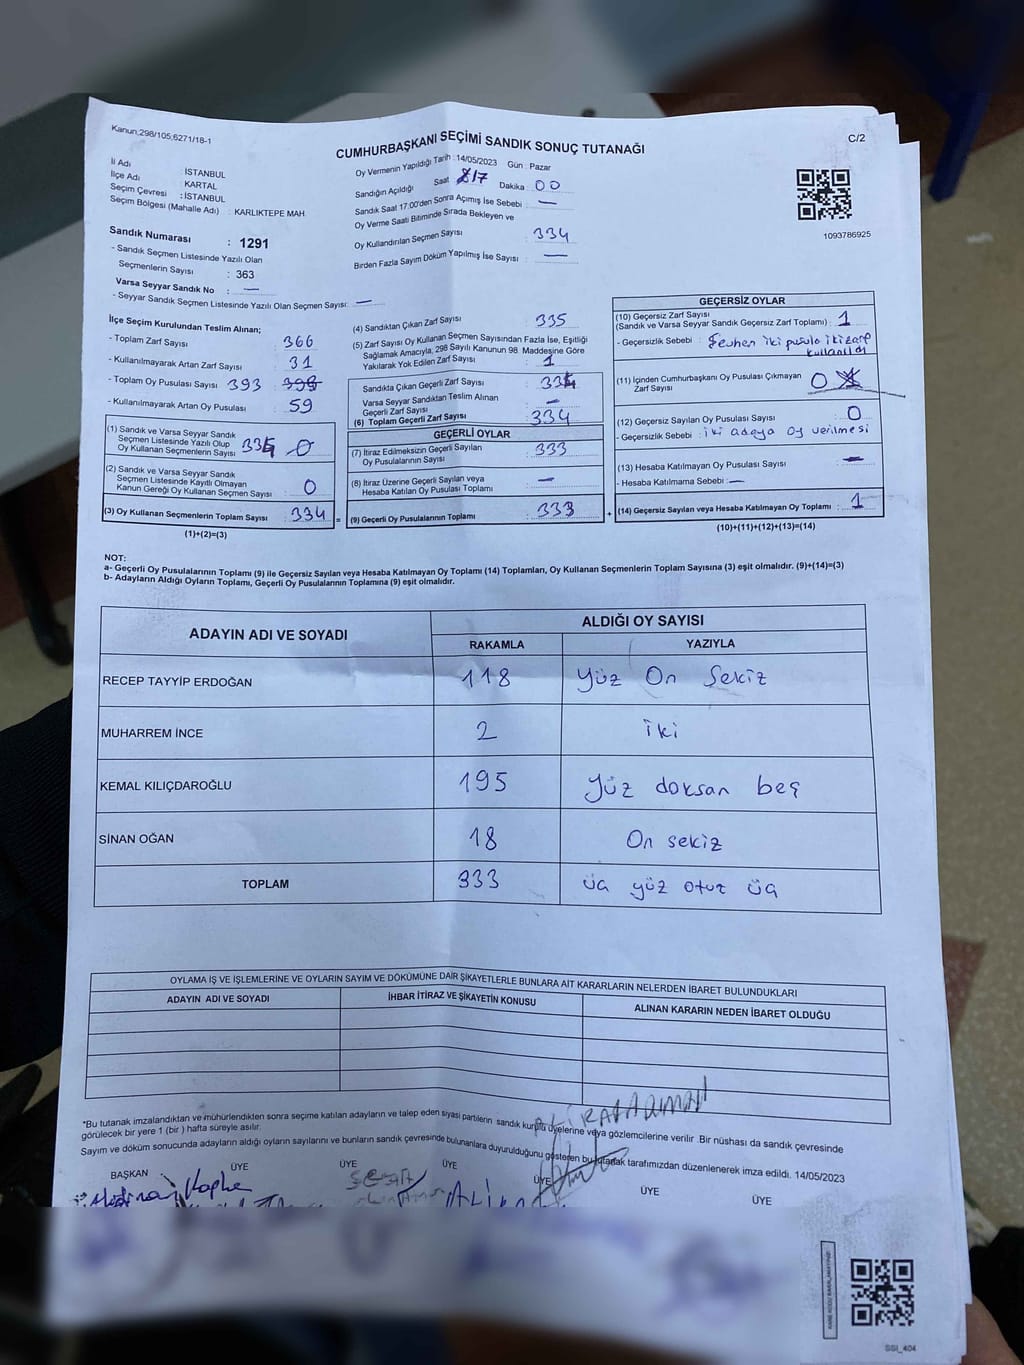 Kanun;298/105;6271/18-1
C/2
CUMHURBAŞKANI SEÇİMİ SANDIK SONUÇ TUTANAĞI
İl Adı : İSTANBUL
İlçe Adı : KARTAL
Seçim Çevresi : İSTANBUL
Seçim Bölgesi (Mahalle Adı) : KARLIKTEPE MAH
Sandık Numarası : 1291
- Sandık Seçmen Listesinde Yazılı Olan
Seçmenlerin Sayısı : 363
Varsa Seyyar Sandık No : —
- Seyyar Sandık Seçmen Listesinde Yazılı Olan Seçmen Sayısı: —
Oy Vermenin Yapıldığı Tarih :14/05/2023 Gün : Pazar
Sandığın Açıldığı Saat 17 Dakika : 00
Sandık Saat 17:00'den Sonra Açımış İse Sebebi : —
Oy Verme Saati Bitiminde Sırada Bekleyen ve
Oy Kullandırılan Seçmen Sayısı : 334
Birden Fazla Sayım Döküm Yapılmış İse Sayısı : —
1093786925
İlçe Seçim Kurulundan Teslim Alınan;
- Toplam Zarf Sayısı : 366
- Kullanılmayarak Artan Zarf Sayısı : 31
- Toplam Oy Pusulası Sayısı 393
- Kullanılmayarak Artan Oy Pusulası : 59
(1) Sandık ve Varsa Seyyar Sandık
Seçmen Listesinde Yazılı Olup
Oy Kullanan Seçmenlerin Sayısı : 334
(2) Sandık ve Varsa Seyyar Sandık
Seçmen Listesinde Kayıtlı Olmayan
Kanun Gereği Oy Kullanan Seçmen Sayısı : 0
(3) Oy Kullanan Seçmenlerin Toplam Sayısı : 334 =
(1)+(2)=(3)
(4) Sandıktan Çıkan Zarf Sayısı : 335
(5) Zarf Sayısı Oy Kullanan Seçmen Sayısından Fazla İse, Eşitliği
Sağlamak Amacıyla, 298 Sayılı Kanunun 98. Maddesine Göre
Yakılarak Yok Edilen Zarf Sayısı : 1
Sandıkta Çıkan Geçerli Zarf Sayısı : 334
Varsa Seyyar Sandıktan Teslim Alınan
Geçerli Zarf Sayısı : —
(6) Toplam Geçerli Zarf Sayısı : 334
GEÇERLİ OYLAR
(7) İtiraz Edilmeksizin Geçerli Sayılan
Oy Pusulalarının Sayısı : 333
(8) İtiraz Üzerine Geçerli Sayılan veya
Hesaba Katılan Oy Pusulası Toplamı : —
(9) Geçerli Oy Pusulalarının Toplamı : 333 +
GEÇERSİZ OYLAR
(10) Geçersiz Zarf Sayısı
(Sandık ve Varsa Seyyar Sandık Geçersiz Zarf Toplamı) : 1
- Geçersizlik Sebebi : Sevhen iki pusula iki zarf
kullanıldı
(11) İçinden Cumhurbaşkanı Oy Pusulası Çıkmayan
Zarf Sayısı : 0
(12) Geçersiz Sayılan Oy Pusulası Sayısı : 0
- Geçersizlik Sebebi : iki adaya oy verilmesi
(13) Hesaba Katılmayan Oy Pusulası Sayısı : —
- Hesaba Katılmama Sebebi : —
(14) Geçersiz Sayılan veya Hesaba Katılmayan Oy Toplamı : 1
(10)+(11)+(12)+(13)=(14)
NOT:
a- Geçerli Oy Pusulalarının Toplamı (9) ile Geçersiz Sayılan veya Hesaba Katılmayan Oy Toplamı (14) Toplamları, Oy Kullanan Seçmenlerin Toplam Sayısına (3) eşit olmalıdır. (9)+(14)=(3)
b- Adayların Aldığı Oyların Toplamı, Geçerli Oy Pusulalarının Toplamına (9) eşit olmalıdır.
ADAYIN ADI VE SOYADI ALDIĞI OY SAYISI
RAKAMLA YAZIYLA
RECEP TAYYİP ERDOĞAN 118 Yüz On Sekiz
MUHARREM İNCE 2 iki
KEMAL KILIÇDAROĞLU 195 Yüz doksan beş
SİNAN OĞAN 18 On sekiz
TOPLAM 333 üç yüz otuz üç
OYLAMA İŞ VE İŞLEMLERİNE VE OYLARIN SAYIM VE DÖKÜMÜNE DAİR ŞİKAYETLERLE BUNLARA AİT KARARLARIN NELERDEN İBARET BULUNDUKLARI
ADAYIN ADI VE SOYADI İHBAR İTİRAZ VE ŞİKAYETİN KONUSU ALINAN KARARIN NEDEN İBARET OLDUĞU
*Bu tutanak imzalandıktan ve mühürlendikten sonra seçime katılan adayların ve talep eden siyasi partilerin sandık kurulu üyelerine veya gözlemcilerine verilir. Bir nüshası da sandık çevresinde
görülecek bir yere 1 (bir) hafta süreyle asılır.
Sayım ve döküm sonucunda adayların aldığı oyların sayılarını ve bunların sandık çevresinde bulunanlara duyurulduğunu gösteren bu tutanak tarafımızdan düzenlenerek imza edildi. 14/05/2023
BAŞKAN ÜYE ÜYE ÜYE ÜYE ÜYE ÜYE
SSI_404